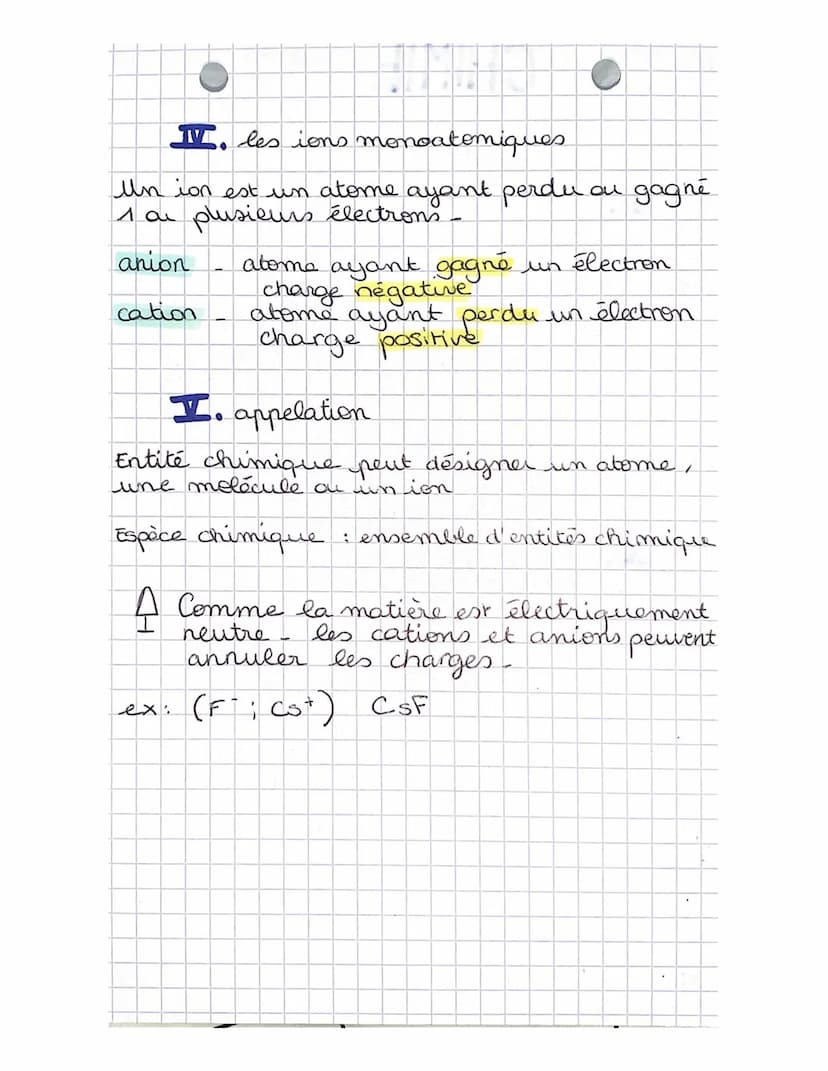 IV. les ions monoatomiques
Un ion est un atome ayant perdu ou gagné
1 ou plusieurs électrons -
anion - atome ayant gagné un électron
charge négative
cation - atome ayant perdu un électron
charge positive
V. appelation
Entité chimique peut désigner un atome,
une molécule ou un ion
Espèce chimique : ensemble d'entités chimique
Comme la matière est électriquement
neutre - les cations et anions peuvent
annuler les charges -
ex: (F⁻ ; Cs⁺) CsF